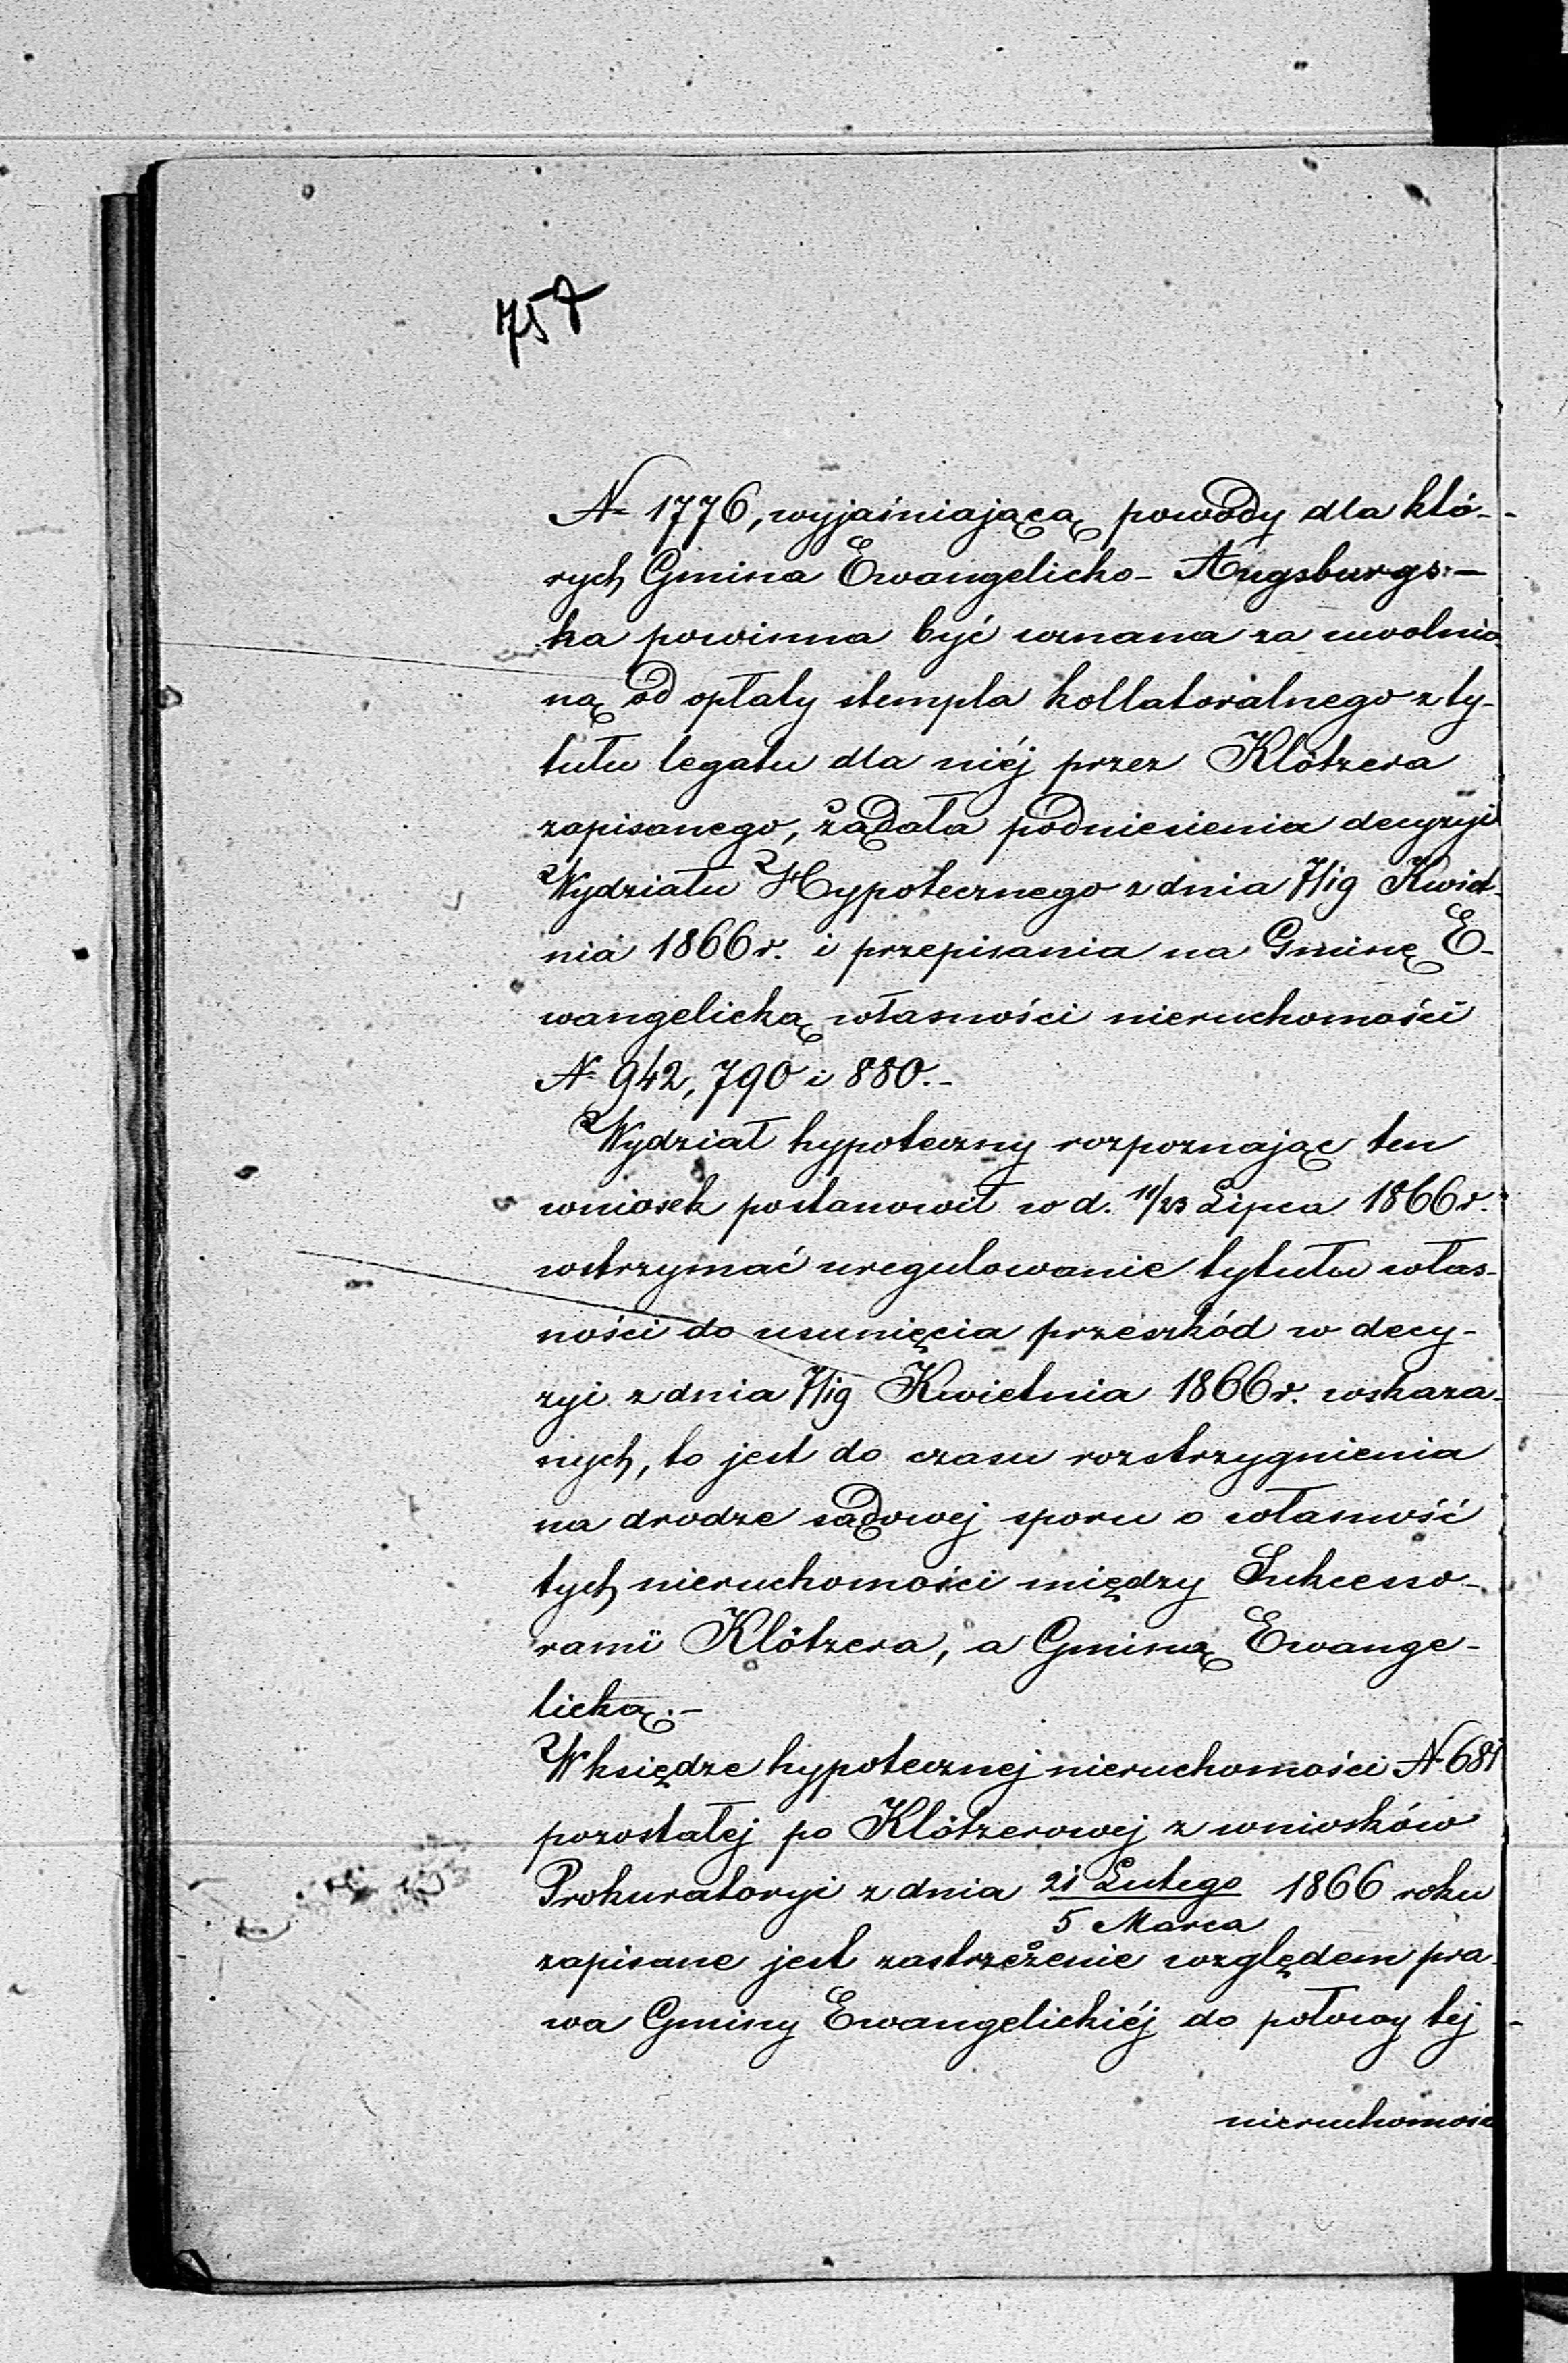 757
N 1776, wyjaśniającą powody dla któ-
rych Gmina Ewangelicko-Augsburgs-
ka powinna być uznana za uwolnio
ną od opłaty stempla kollatoralnego z ty-
tułu legatu dla niéj przez Klötzera
zapisanego, żądała podniesienia decyzyi
Wydziału Hypotecznego z dnia 7/19 Kwiet-
nia 1866 r. i przepisania na Gminę E-
wangelicką własności nieruchomości
N 942, 790 i 880.-
Wydział hypoteczny rozpoznając ten
wniosek postanowił w d. 11/23 Lipca 1866 r.
wstrzymać uregulowanie tytułu włas-
ności do usunięcia przeszkód w decy-
zyi z dnia 7/19 Kwietnia 1866 r. wskaza-
nych, to jest do czasu rozstrzygnienia
na drodze sądowej sporu o własność
tych nieruchomości między Sukcesso-
rami Klötzera, a Gminą Ewange-
licką.-
W księdze hypotecznej nieruchomości N 681
pozostałej po Klötzerowej z wniosków
Prokuratoryi z dnia 21 Lutego / 5 Marca 1866 roku
zapisane jest zastrzeżenie względem pra-
wa Gminy Ewangelickiéj do połowy tej
nieruchomośc